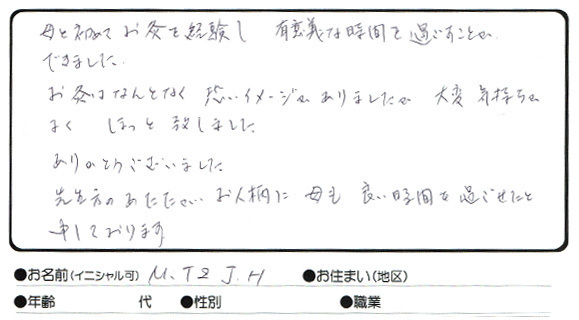 母と初めてお灸を経験し 有意義な時間を過ごすことが
できました。
お灸はなんとなく 恐いイメージがありましたが 大変 気持ちが
よく ほっと致しました
ありがとうございました
先生方のあたたかいお人柄に 母も 良い時間を過ごせたと
申しております
●お名前(イニシャル可) M.T & J.H ●お住まい(地区)
●年齢 代 ●性別 ●職業